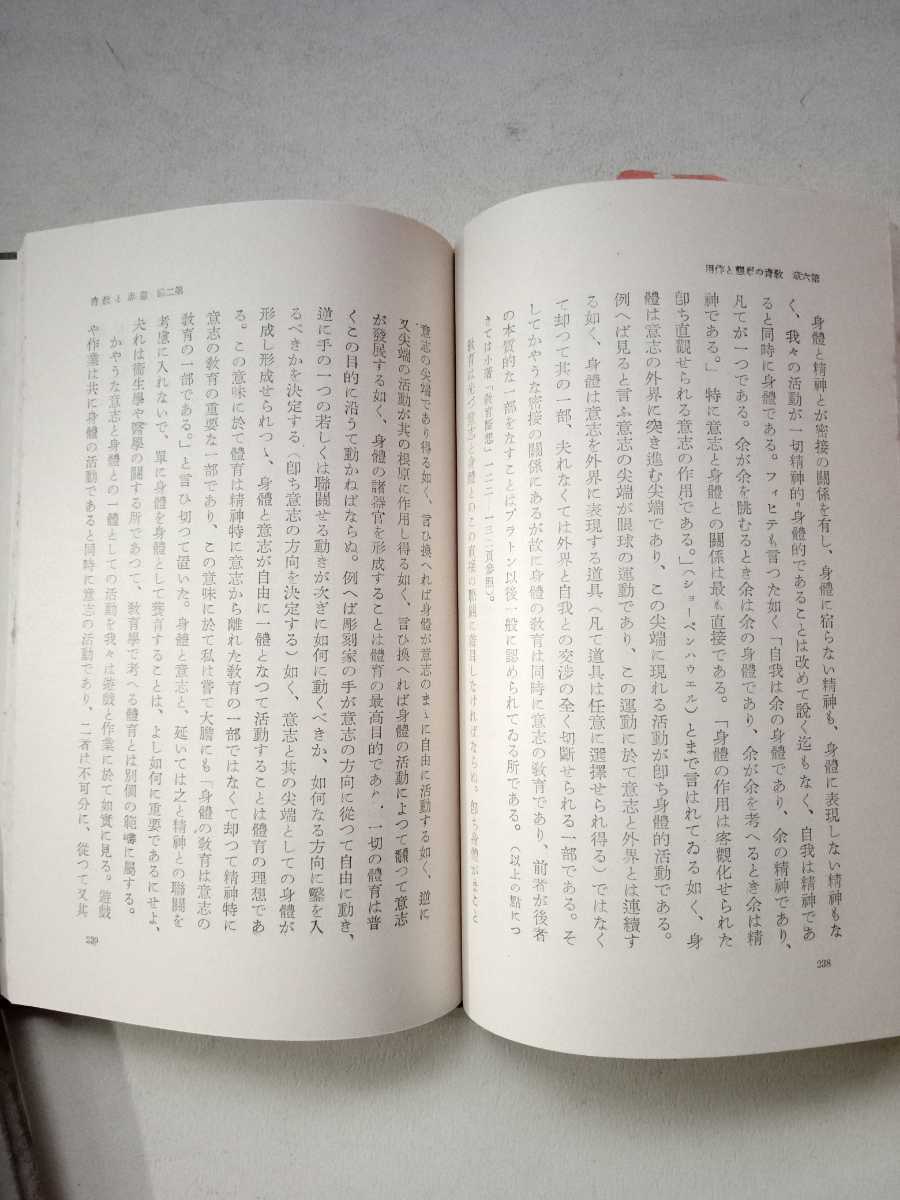 第六章 教育の理想と作用
身體と精神とが密接の關係を有し、身體に宿らない精神も、身體に表現しない精神もな
く、我々の活動が一切精神的・身體的であることは改めて說く迄もなく、自我は精神であ
ると同時に身體である。フィヒテも言つた如く「自我は余の身體であり、余の精神であり、
凡てが一つである。余が余を眺むるとき余は余の身體であり、余が余を考へるとき余は精
神である。」特に意志と身體との關係は最も直接である。「身體の作用は客觀化せられた
卽ち直觀せられる意志の作用である。」(ショーペンハウエル)とまで言はれてゐる如く、身
體は意志の外界に突き進む尖端であり、この尖端に現れる活動が卽ち身體的活動である。
例へば見ると言ふ意志の尖端が眼球の運動であり、この運動に於て意志と外界とは連續す
る如く、身體は意志を外界に表現する道具(凡て道具は任意に選擇せられ得る)ではなく
て却つて其の一部、夫れなくては外界と自我との交涉の全く切斷せられる一部である。そ
してかやうな密接の關係にあるが故に身體の敎育は同時に意志の敎育であり、前者が後者
の本質的な一部をなすことはプラトン以後一般に認められてゐる所である。(以上の點につ
きては小著「敎育 想」一二二—一三二頁參照)。
敎育は 意志と身體とのこの直接の聯關に着目しなければならぬ。卽ち身體が
238
第二編 意志と敎育
意志の尖端であり得る如く、言ひ換へれば身體が意志のまゝに自由に活動する如く、逆に
又尖端の活動が其の根原に作用し得る如く、言ひ換へれば身體の活動によつて飜つて意志
が發展する如く、身體の諸器官を形成することは體育の最高目的であり、一切の體育は普
くこの目的に沿うて動かねばならぬ。例へば彫刻家の手が意志の方向に從つて自由に動き、
逆に手の一つの若しくは聯關せる動きが次ぎに如何に動くべきか、如何なる方向に鑿を入
るべきかを決定する(卽ち意志の方向を決定する)如く、意志と其の尖端としての身體が
形成し形成せられつゝ、身體と意志が自由に一體となつて活動することは體育の理想であ
る。この意味に於て體育は精神特に意志から離れた敎育の一部ではなくて却つて精神特に
意志の敎育の重要な一部であり、この意味に於て私は嘗て大膽にも「身體の敎育は意志の
敎育の一部である。」と言ひ切つて置いた。身體と意志と、延いては之と精神との聯關を
考慮に入れないで、單に身體を身體として養育することは、よし如何に重要であるにせよ、
夫れは衞生學や醫學の關する所であつて、敎育學で考へる體育とは別個の範疇に屬する。
かやうな意志と身體との一體としての活動を我々は遊戲と作業に於て如實に見る。遊戲
や作業は共に身體の活動であると同時に意志の活動であり、二者は不可分に、從つて又其
239